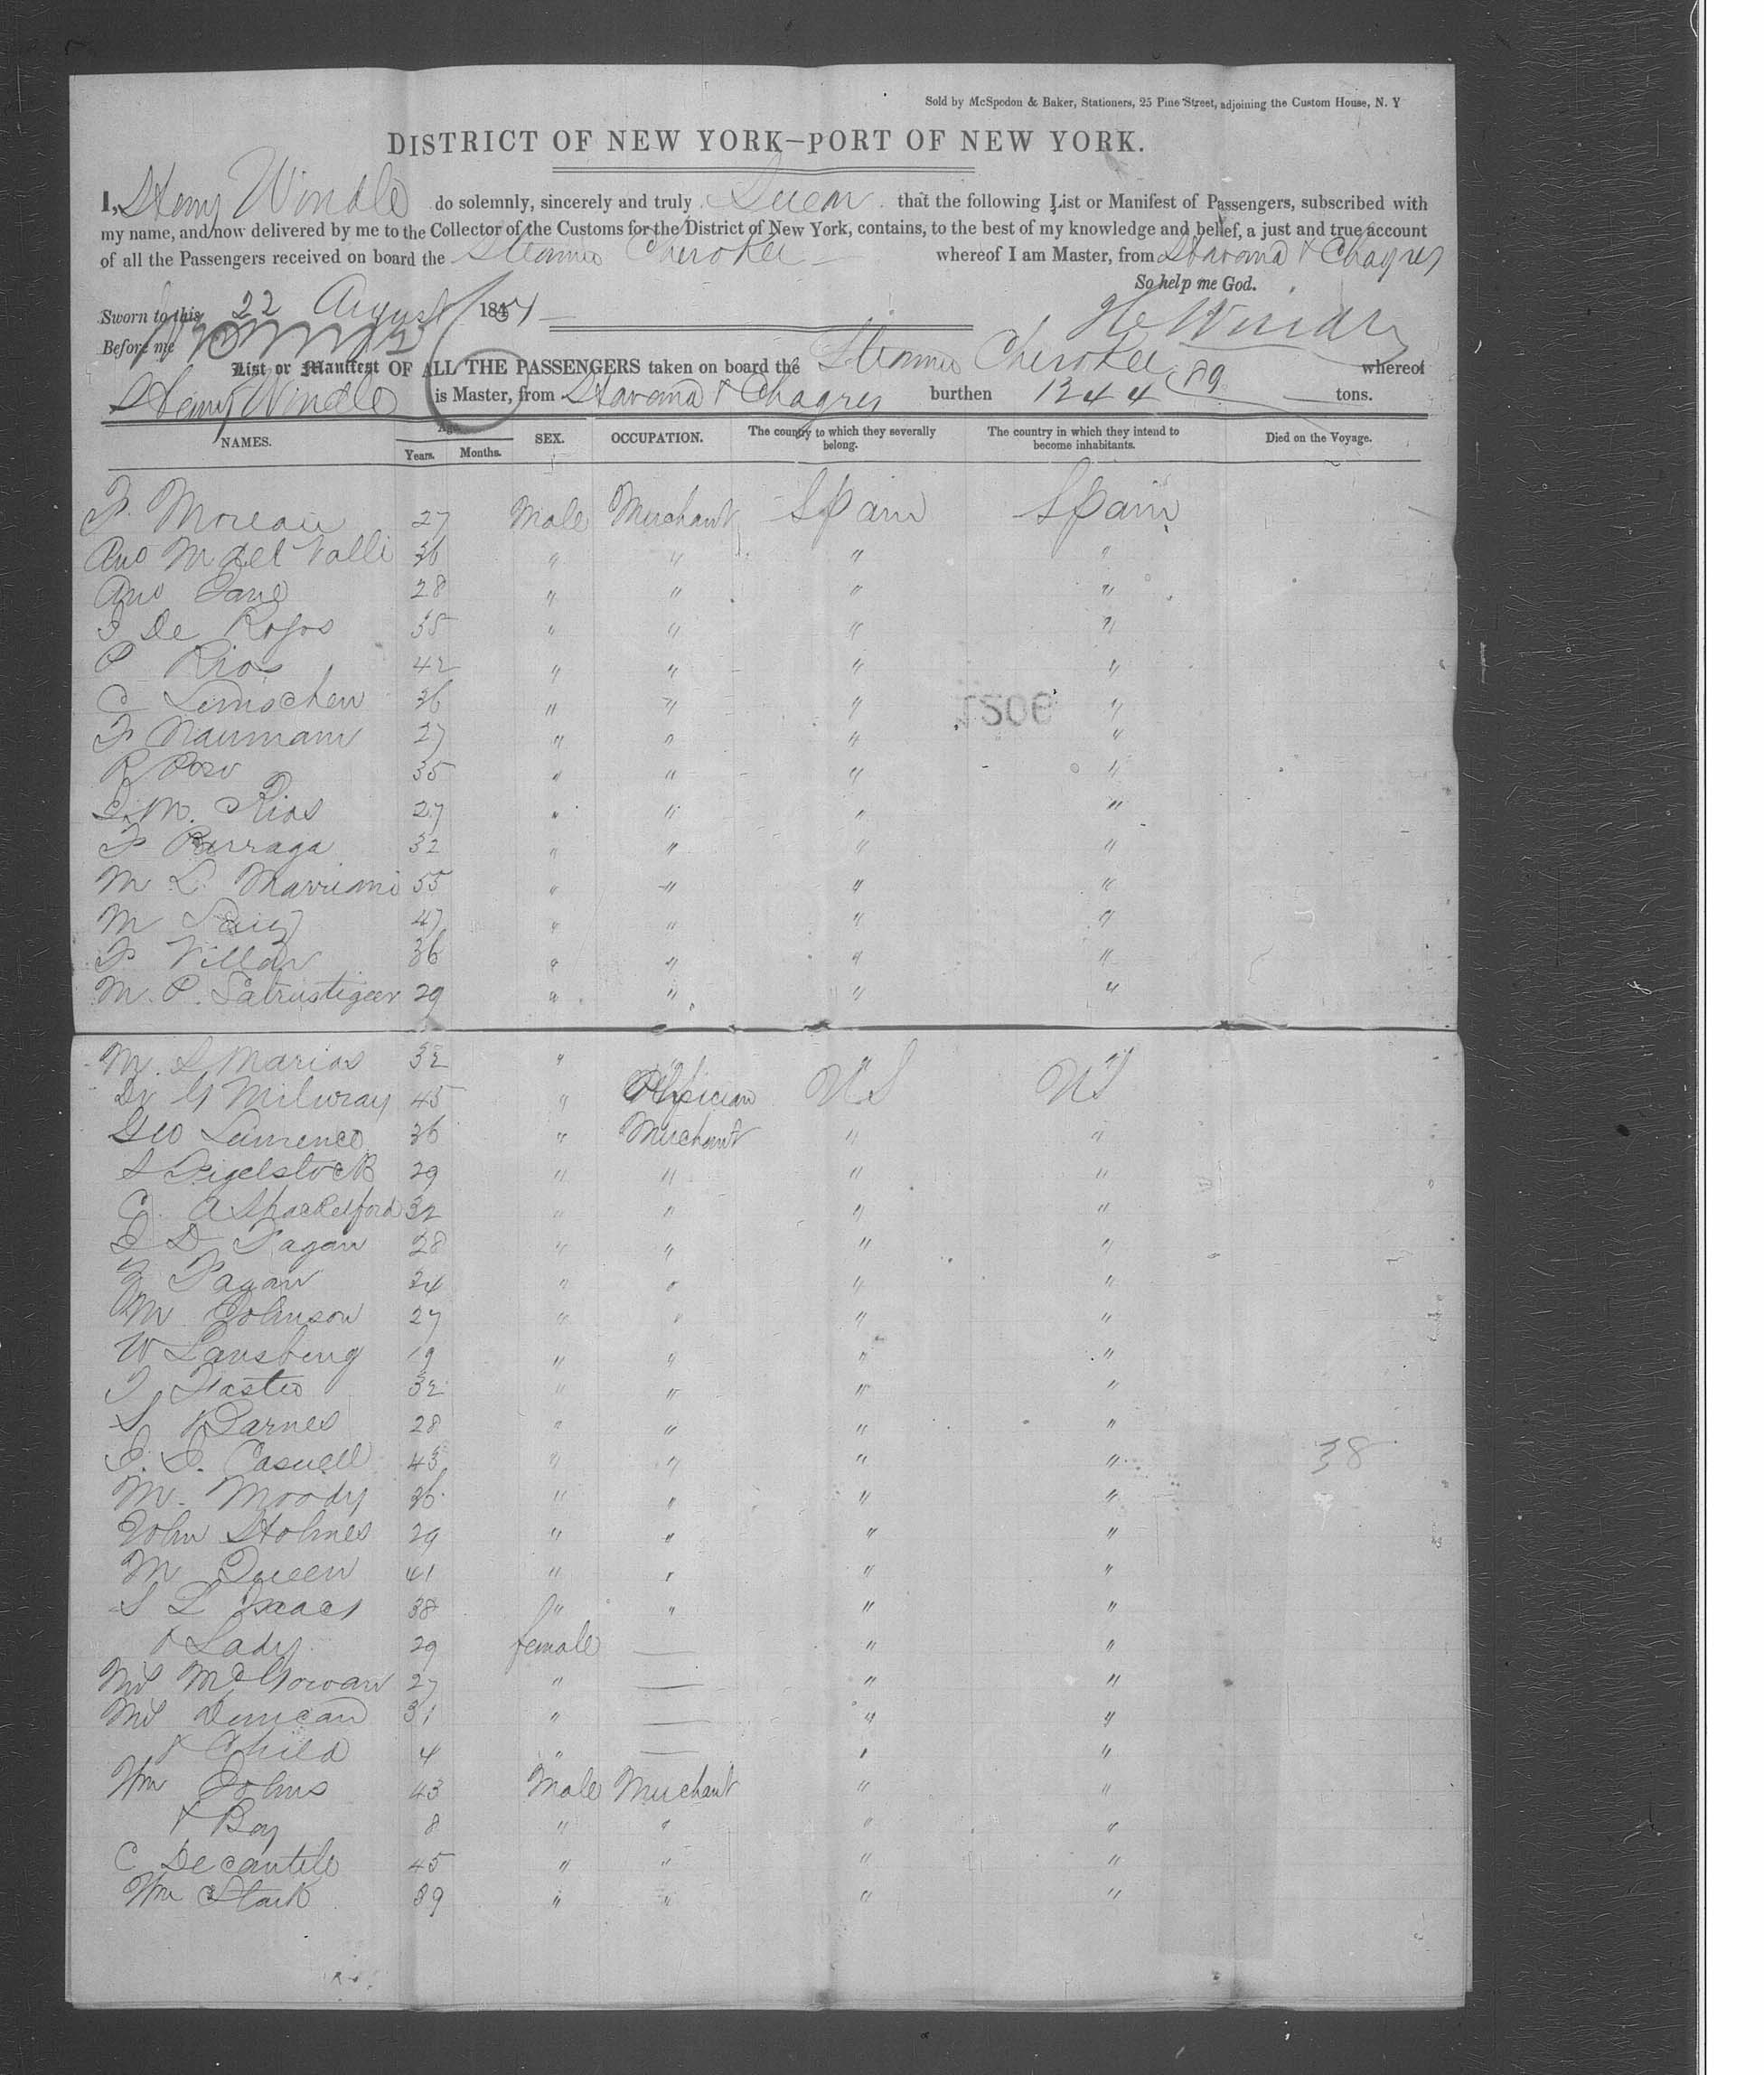 Sold by McSpedon & Baker, Stationers, 25 Pine Street, adjoining the Custom House, N. Y
DISTRICT OF NEW YORK—PORT OF NEW YORK.
I, Henry Windle do solemnly, sincerely and truly Swear that the following List or Manifest of Passengers, subscribed with
my name, and now delivered by me to the Collector of the Customs for the District of New York, contains, to the best of my knowledge and belief, a just and true account
of all the Passengers received on board the Steamer Cherokee whereof I am Master, from Havana & Chagres
So help me God.
Sworn to this 22 August 1851
H Windle
Before me
List or Manifest OF ALL THE PASSENGERS taken on board the Steamer Cherokee whereof
Henry Windle is Master, from Havana & Chagres burthen 1244 89 tons.
NAMES. Age. Years. Months. SEX. OCCUPATION. The country to which they severally belong. The country in which they intend to become inhabitants. Died on the Voyage.
F. Moreau 27 Male Merchant Spain Spain
M del Valle 36 " " " "
28 " " " "
De Rojos 35 " " " "
P Rios 42 " " " "
C 36 " " " "
F Naumann 27 " " " "
R Pozo 35 " " " "
J. M. Rios 27 " " " "
F Parraga 32 " " " "
M L. Marriami 55 " " " "
M 47 " " " "
F Villar 36 " " " "
M. P. Satrustigeer 29 " " " "
M. S Marias 32 " "
Dr G Milwray 45 " Physician US US
Geo Lawrence 36 " Merchant " "
S Figelstock 29 " " " "
C. A Shackelford 32 " " " "
D Fagan 28 " " " "
Fagan 24 " " " "
M Johnson 27 " " " "
W Lansberg 19 " " " "
32 " " " "
S Barnes 28 " " " "
Caswell 43 " " " "
M. Moody 36 " " " "
38
John Holmes 29 " " " "
M Queen 41 " " " "
S L Isaacs 38 " " " "
& Lady 29 female — " "
Mrs McGowan 27 " — " "
Mrs Duncan 31 " — " "
& Child 4 " — " "
Wm Johns 43 Male Merchant " "
& Boy 8 " " " "
C Decantelo 45 " " " "
Wm Stark 39 " " " "